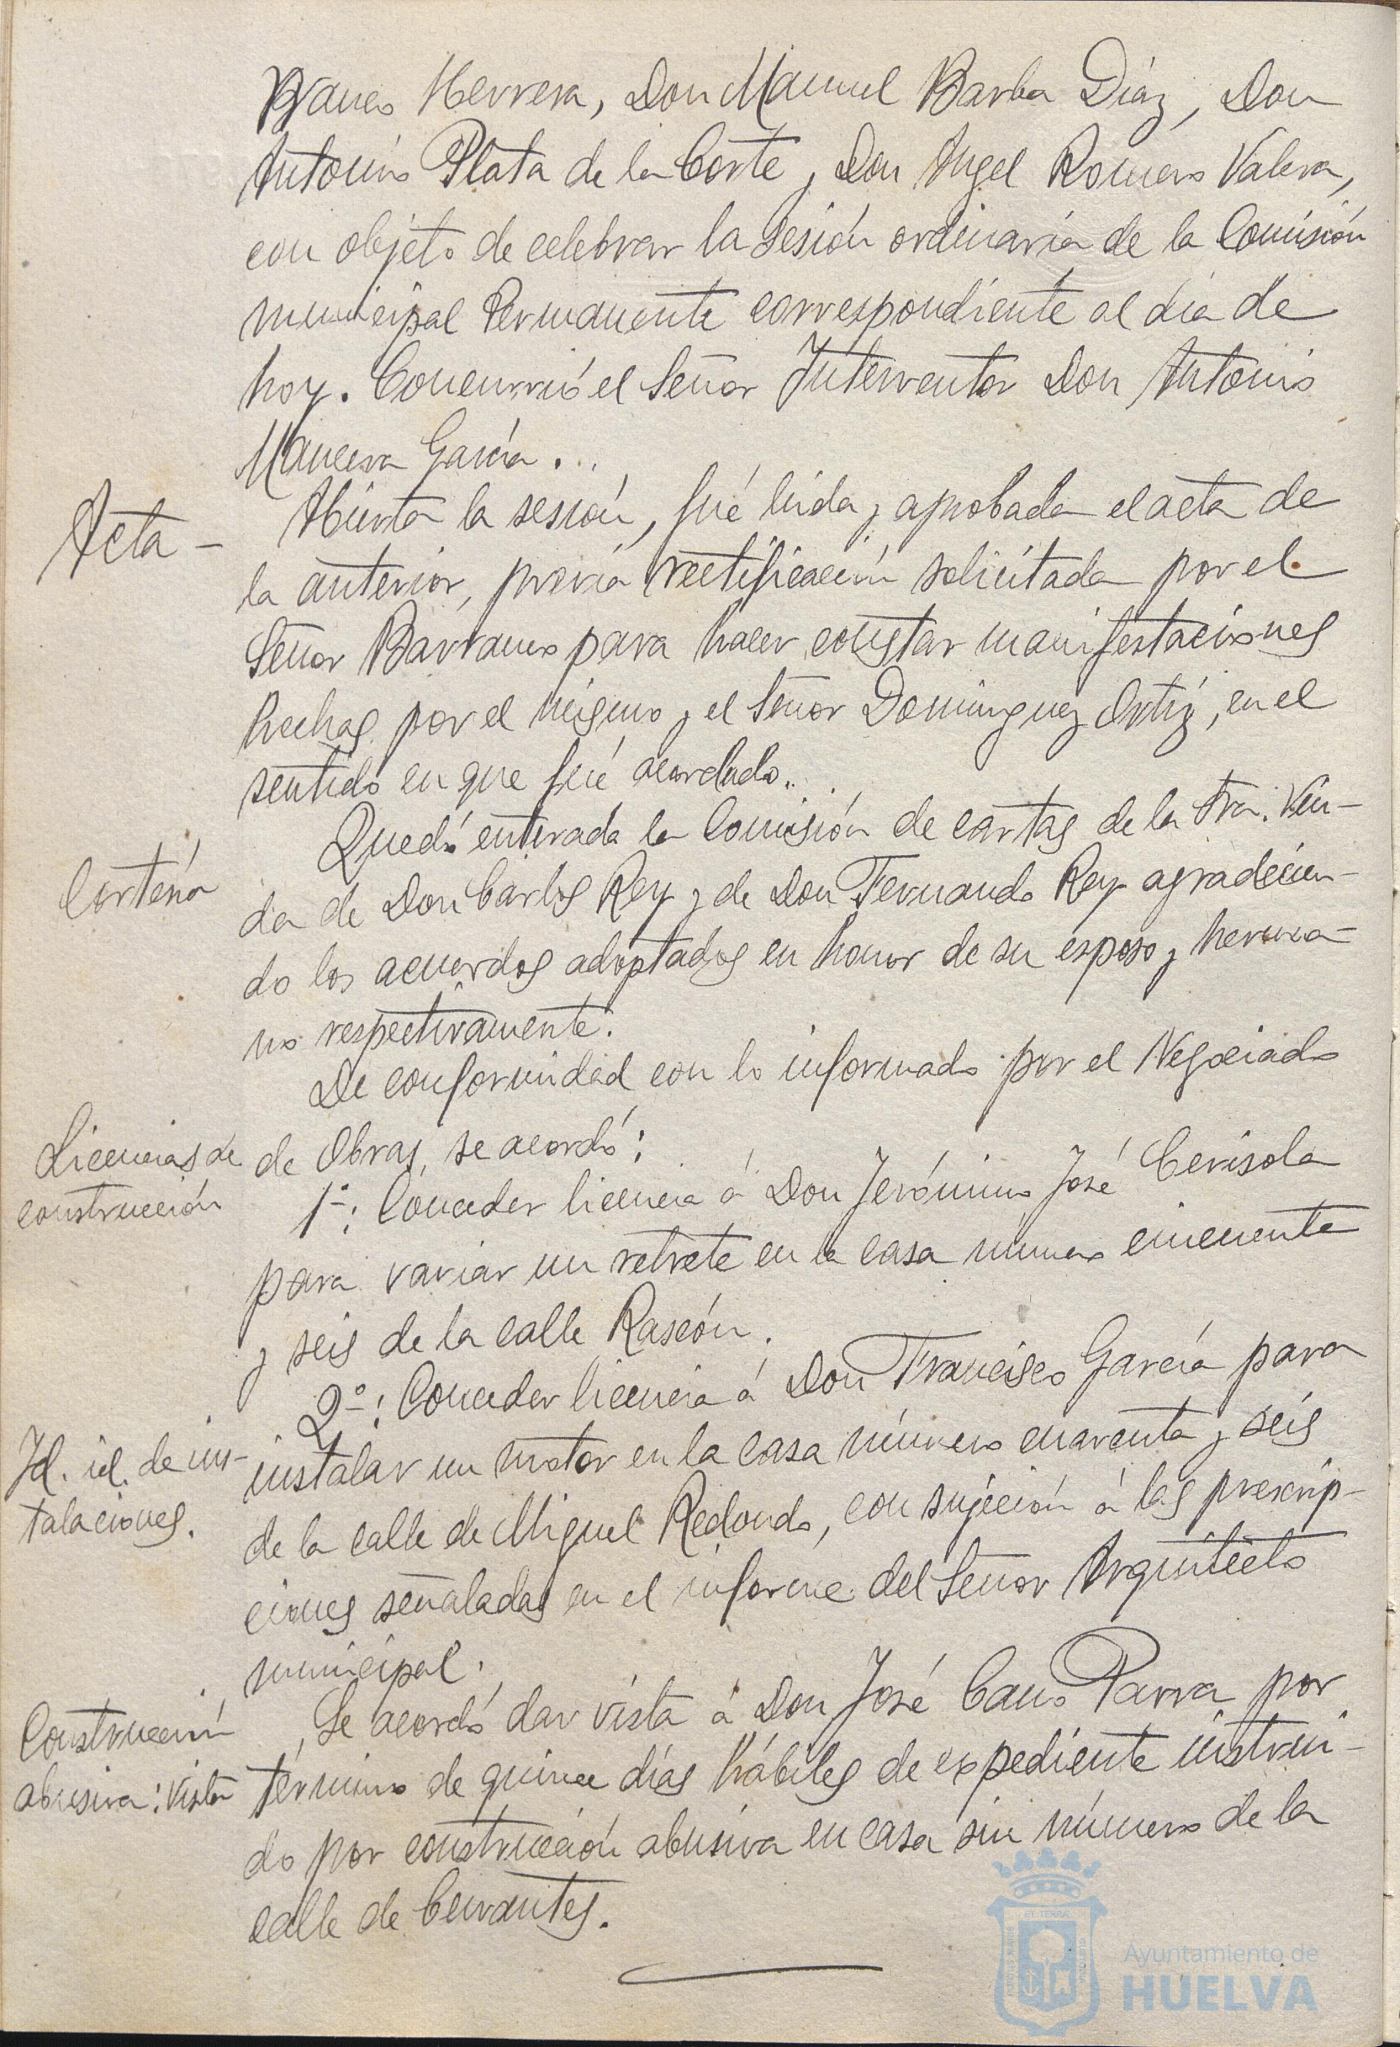 Blanco Herrera, Don Manuel Barba Díaz, Don
Antonio Plata de la Corte y Don Angel Romero Valera,
con objeto de celebrar la sesión ordinaria de la Comisión
municipal Permanente correspondiente al día de
hoy. Concurrió el Señor Interventor Don Antonio
Mancera García...
Acta -
Abierta la sesión, fué leida y aprobada el acta de
la anterior, previa rectificación solicitada por el
Señor Barranco para hacer constar manifestaciones
hechas por el mismo y el Señor Dominguez Ortíz, en el
sentido en que fué acordado..
Cortesía
Quedó enterada la Comisión de cartas de la Sra. Viu-
da de Don Carlos Rey y de Don Fernando Rey agradecien-
do los acuerdos adoptados en honor de su esposo y herma-
no respectivamente.
De conformidad con lo informado por el Negociado
Licencias de
construcción
de Obras, se acordó:
1º: Conceder licencia á Don Jerónimo José Cerisola
para variar un retrete en la casa número cincuenta
y seis de la calle Rascón.
2º: Conceder licencia á Don Francisco García para
Id. id. de ins-
talaciones.
instalar un motor en la casa número cuarenta y seis
de la calle de Miguel Redondo, con sujeción á las prescrip-
ciones señaladas en el informe del Señor Arquitecto
municipal.
Construcción
abusiva: vista
Se acordó dar vista á Don José Cano Parra por
término de quince días hábiles de expediente instrui-
do por construcción abusiva en casa sin número de la
calle de Cervantes.
Ayuntamiento de
HUELVA